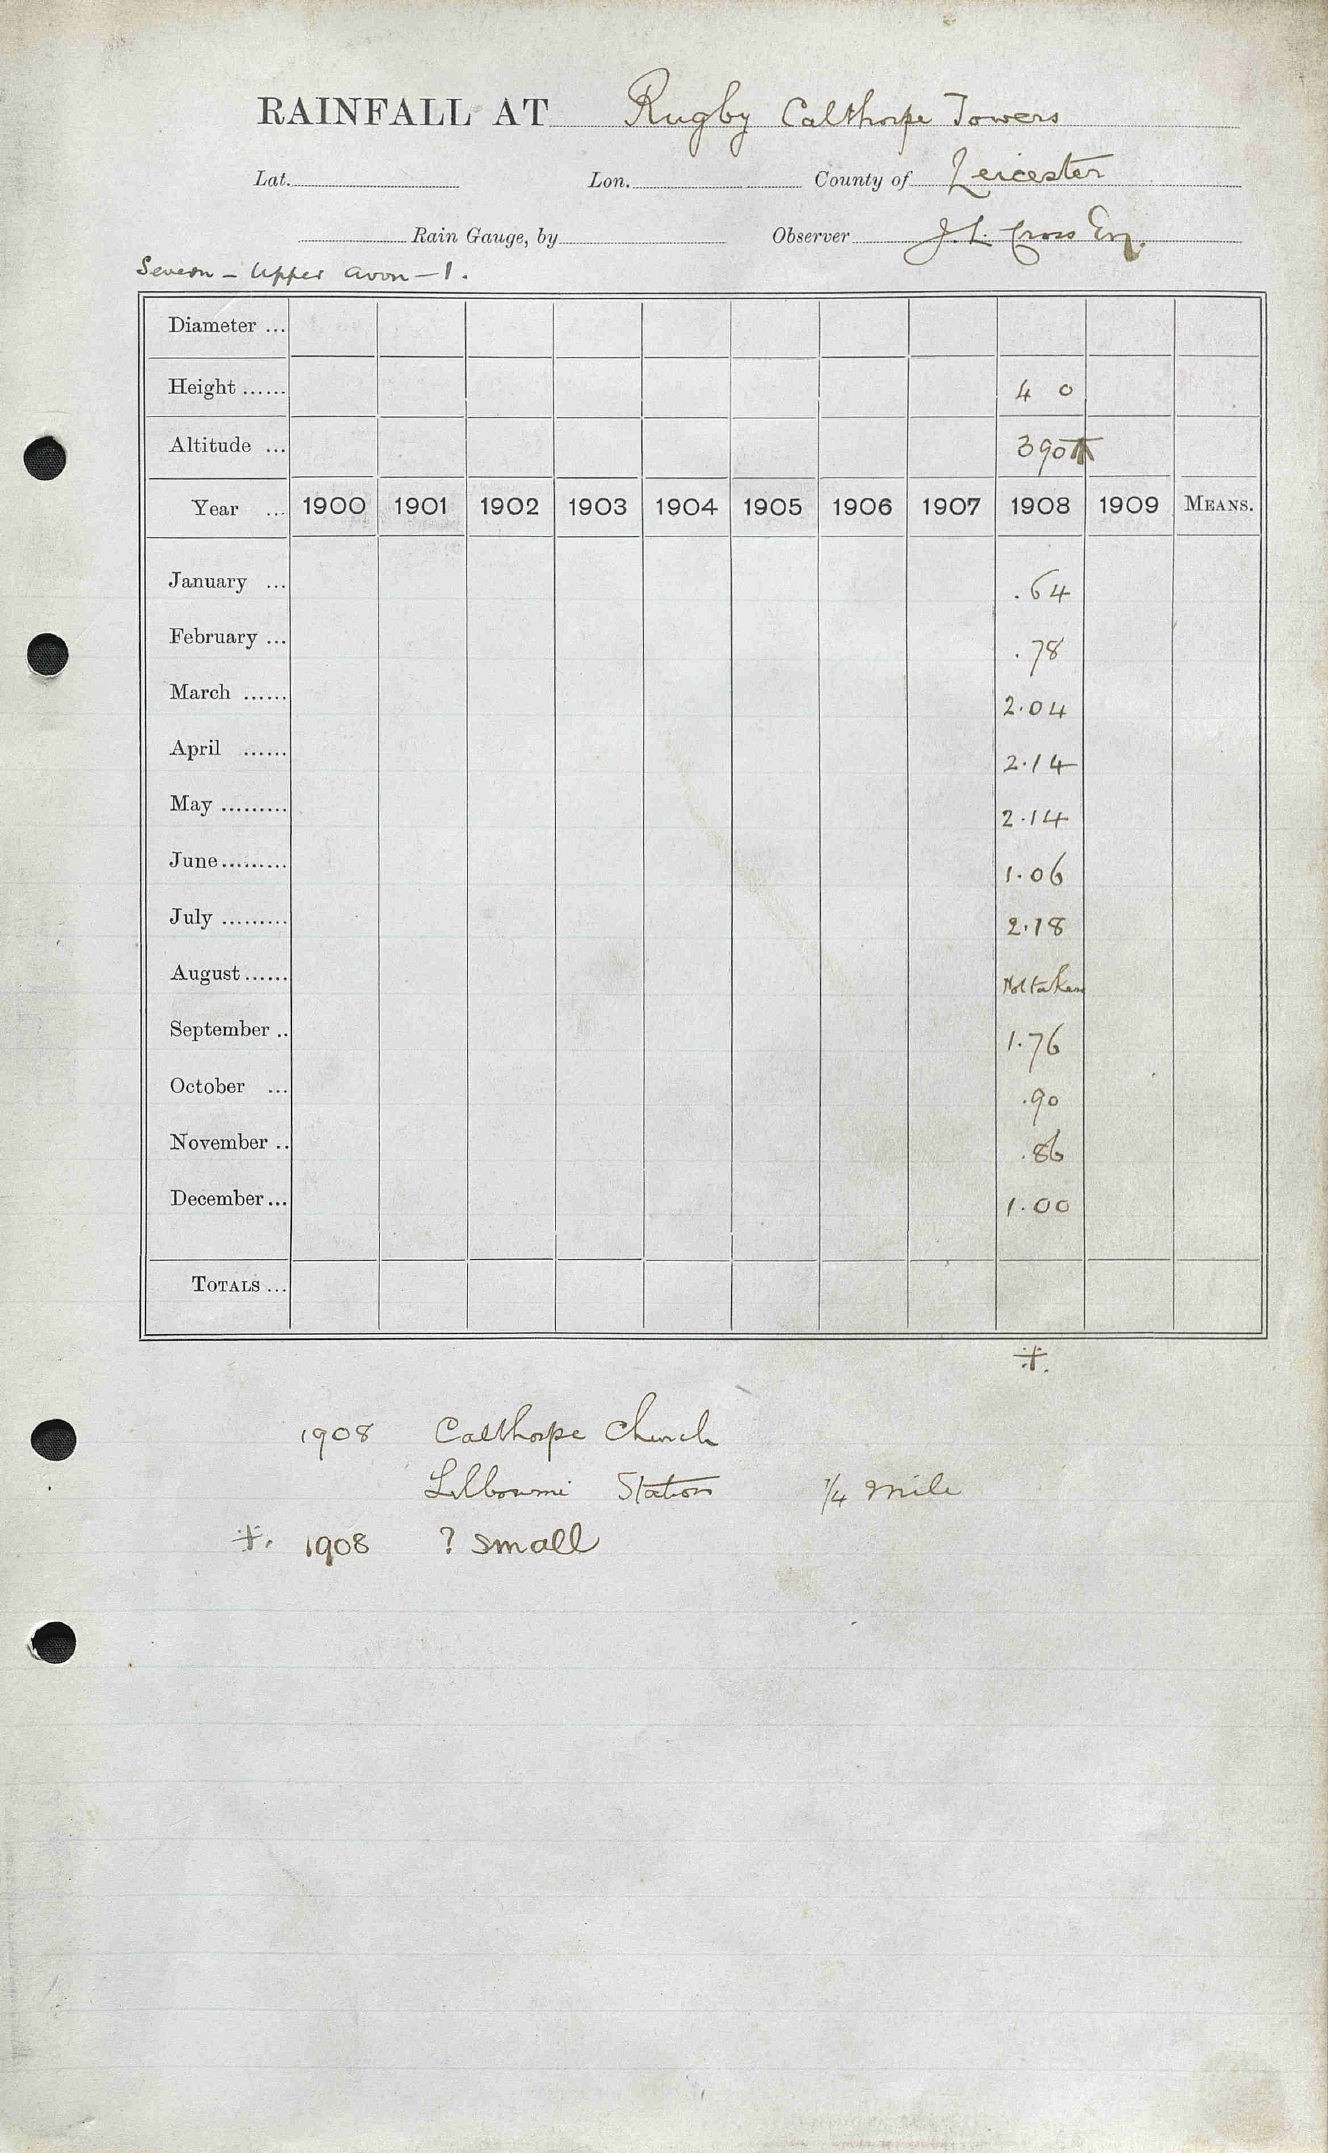 RAINFALL AT Rugby Calthorpe Towers
Lat. Lon. County of Leicester
Rain Gauge, by Observer J. L. Cross Esq.
Severn - Upper Avon - 1.
Diameter ...
Height ...... 4 0
Altitude ... 390 ft
Year ... 1900 1901 1902 1903 1904 1905 1906 1907 1908 1909 MEANS.
January ... .64
February ... .78
March ...... 2.04
April ...... 2.14
May ......... 2.14
June ......... 1.06
July ......... 2.18
August ...... Not taken
September .. 1.76
October ... .90
November .. .86
December ... 1.00
TOTALS ...
‡.
1908 Calthorpe Church
Lilbourne Station 1/4 mile
‡. 1908 ? small